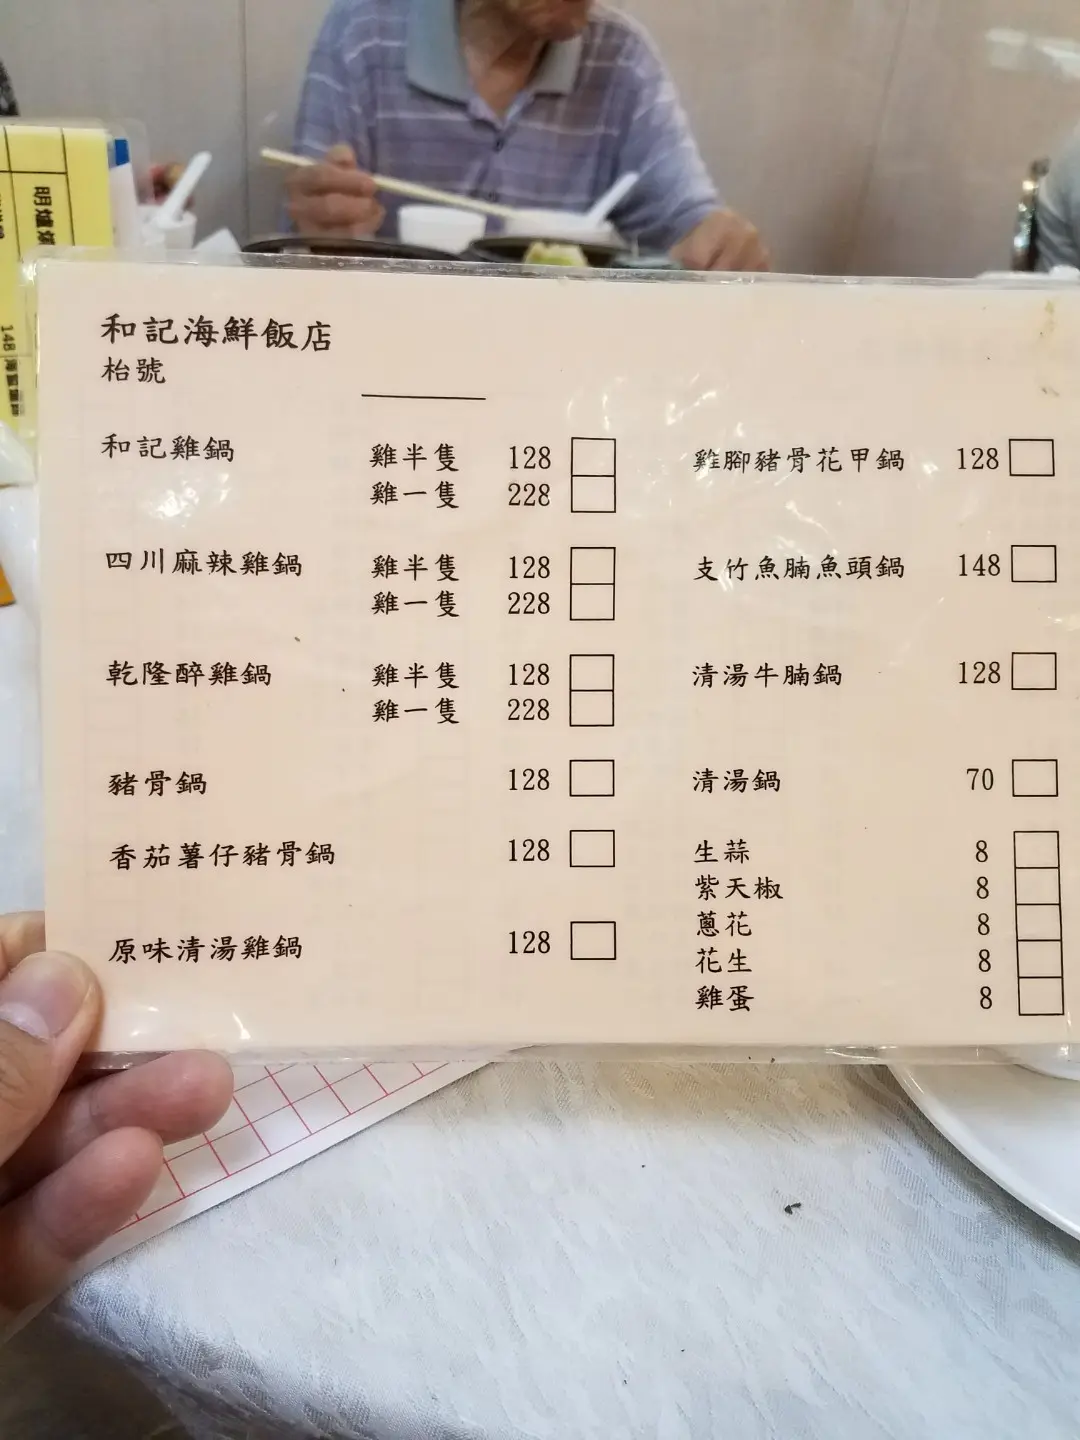 和記海鮮飯店
枱號
和記雞鍋 雞半隻 128
雞一隻 228
四川麻辣雞鍋 雞半隻 128
雞一隻 228
乾隆醉雞鍋 雞半隻 128
雞一隻 228
豬骨鍋 128
香茄薯仔豬骨鍋 128
原味清湯雞鍋 128
雞腳豬骨花甲鍋 128
支竹魚腩魚頭鍋 148
清湯牛腩鍋 128
清湯鍋 70
生蒜 8
紫天椒 8
蔥花 8
花生 8
雞蛋 8
明爐
148